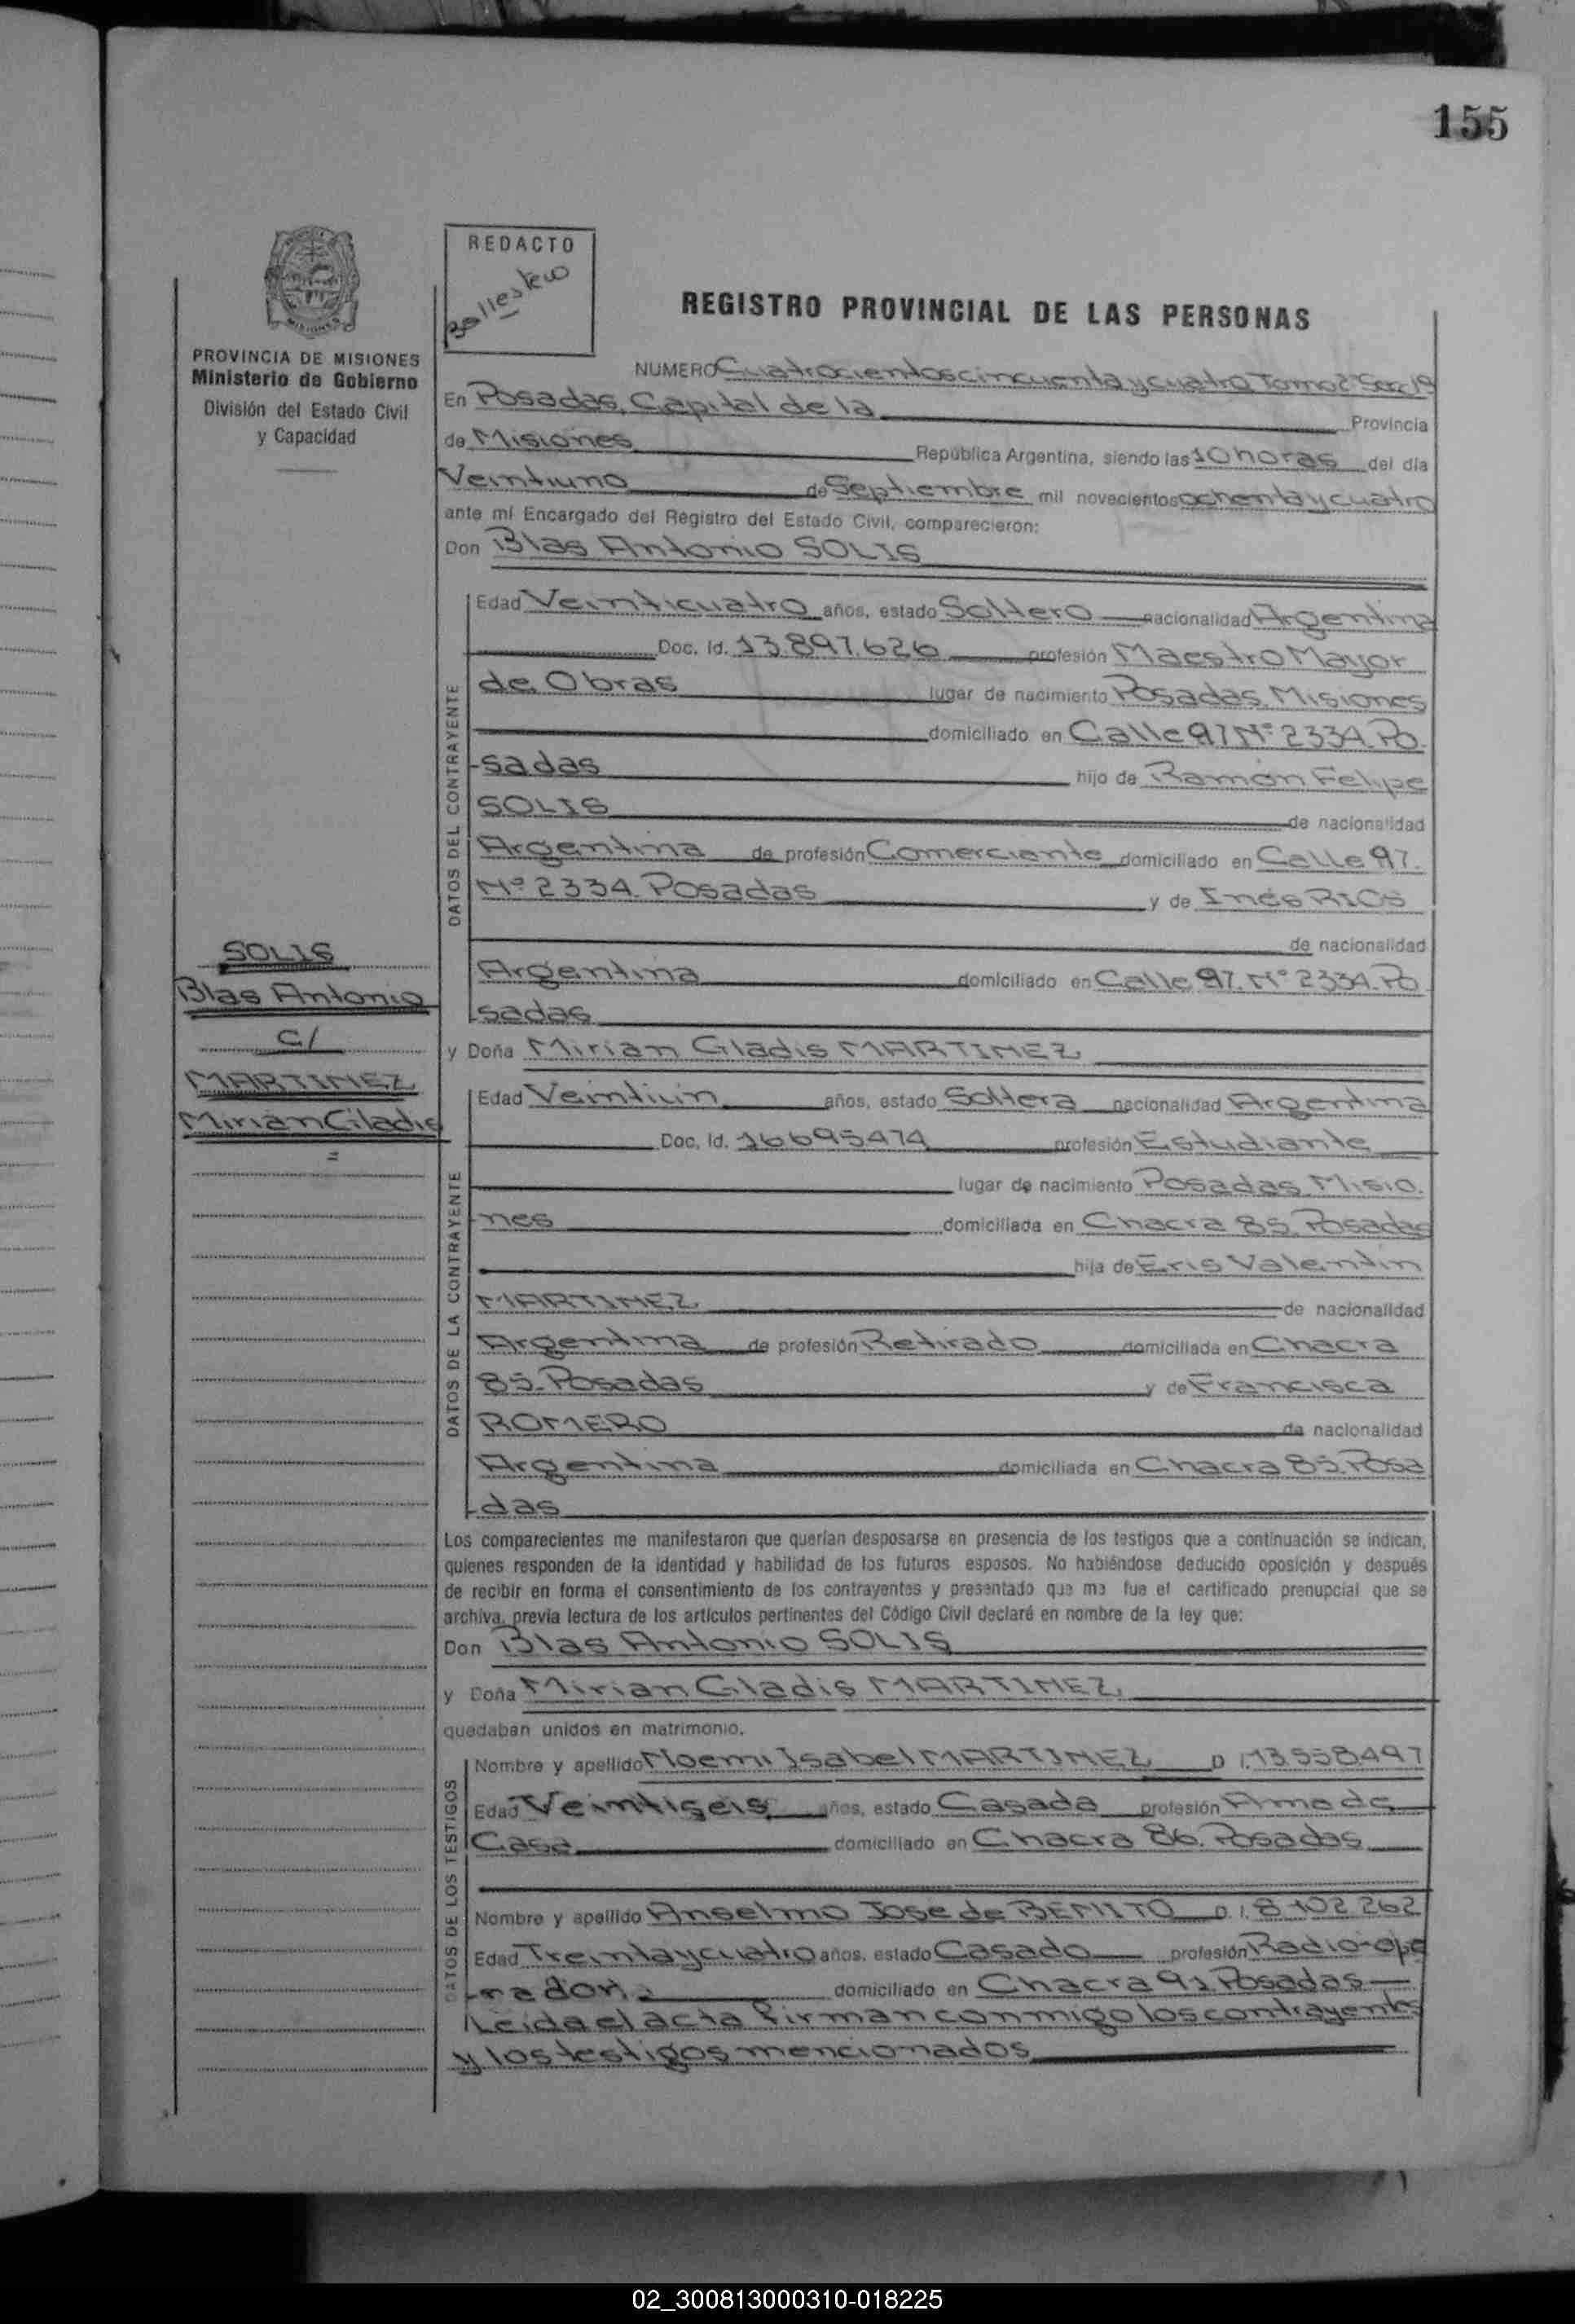 155
REDACTO
Ballestero
REGISTRO PROVINCIAL DE LAS PERSONAS
PROVINCIA DE MISIONES
Ministerio de Gobierno
División del Estado Civil
y Capacidad
NUMERO Cuatrocientos cincuenta y cuatro Tomo 2º Secc 1ª
En Posadas, Capital de la Provincia
de Misiones República Argentina, siendo las 10 horas del día
Veintiuno de Septiembre mil novecientos ochenta y cuatro
ante mí Encargado del Registro del Estado Civil, comparecieron:
Don Blas Antonio SOLIS
DATOS DEL CONTRAYENTE
Edad Veinticuatro años, estado Soltero nacionalidad Argentina
Doc. Id. 13.897.626 profesión Maestro Mayor
de Obras lugar de nacimiento Posadas Misiones
domiciliado en Calle 97 Nº 2334. Po-
-sadas hijo de Ramón Felipe
SOLIS de nacionalidad
Argentina de profesión Comerciante domiciliado en Calle 97.
Nº 2334. Posadas y de Inés RIOS
de nacionalidad
Argentina domiciliado en Calle 97. Nº 2334. Po
-sadas
SOLIS
Blas Antonio
C/
MARTINEZ
Mirian Gladis
=
y Doña Mirian Gladis MARTINEZ
DATOS DE LA CONTRAYENTE
Edad Veintiún años, estado Soltera nacionalidad Argentina
Doc. Id. 16695474 profesión Estudiante
lugar de nacimiento Posadas Misio.
-nes domiciliada en Chacra 85. Posadas
hija de Eris Valentin
MARTINEZ de nacionalidad
Argentina de profesión Retirado domiciliada en Chacra
85. Posadas y de Francisca
ROMERO de nacionalidad
Argentina domiciliada en Chacra 85. Posa
-das
Los comparecientes me manifestaron que querían desposarse en presencia de los testigos que a continuación se indican,
quienes responden de la identidad y habilidad de los futuros esposos. No habiéndose deducido oposición y después
de recibir en forma el consentimiento de los contrayentes y presentado que me fue el certificado prenupcial que se
archiva, previa lectura de los artículos pertinentes del Código Civil declaré en nombre de la ley que:
Don Blas Antonio SOLIS
y Doña Mirian Gladis MARTINEZ
quedaban unidos en matrimonio.
DATOS DE LOS TESTIGOS
Nombre y apellido Noemi Isabel MARTINEZ D I. 13.558.497
Edad Veintiseis años, estado Casada profesión Ama de
Casa domiciliado en Chacra 86. Posadas
Nombre y apellido Anselmo Jose de BENITO D.I. 8 102 262
Edad Treinta y cuatro años, estado Casado profesión Radio-ope
-rador. domiciliado en Chacra 92 Posadas
Leida el acta firman conmigo los contrayentes
y los testigos mencionados
02_300813000310-018225